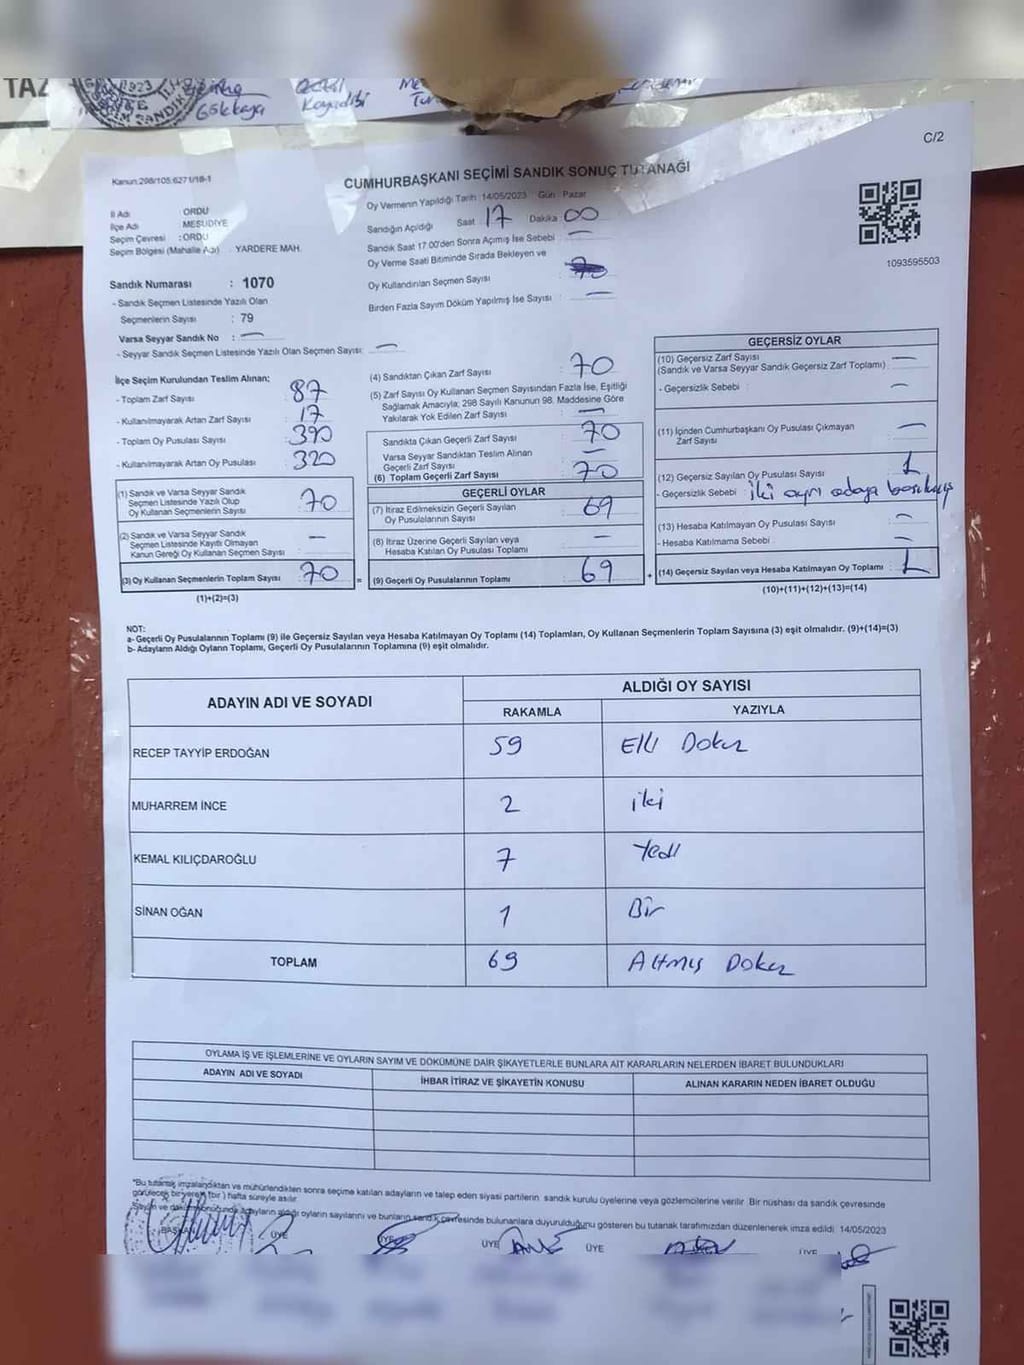 TAZ
1923
Gökkaya
Kayadibi
C/2
Kanun:298/105;6271/18-1
CUMHURBAŞKANI SEÇİMİ SANDIK SONUÇ TUTANAĞI
Oy Vermenin Yapıldığı Tarih :14/05/2023 Gün : Pazar
İl Adı ORDU
İlçe Adı MESUDİYE
Seçim Çevresi : ORDU
Seçim Bölgesi (Mahalle Adı) : YARDERE MAH.
Sandığın Açıldığı Saat 17 Dakika 00
Sandık Saat 17:00'den Sonra Açılmış İse Sebebi : —
Oy Verme Saati Bitiminde Sırada Bekleyen ve
Oy Kullandırılan Seçmen Sayısı
Birden Fazla Sayım Döküm Yapılmış İse Sayısı : —
1093595503
Sandık Numarası : 1070
- Sandık Seçmen Listesinde Yazılı Olan
Seçmenlerin Sayısı : 79
Varsa Seyyar Sandık No : —
- Seyyar Sandık Seçmen Listesinde Yazılı Olan Seçmen Sayısı: —
İlçe Seçim Kurulundan Teslim Alınan;
- Toplam Zarf Sayısı : 87
- Kullanılmayarak Artan Zarf Sayısı : 17
- Toplam Oy Pusulası Sayısı : 390
- Kullanılmayarak Artan Oy Pusulası : 320
(1) Sandık ve Varsa Seyyar Sandık
Seçmen Listesinde Yazılı Olup
Oy Kullanan Seçmenlerin Sayısı : 70
(2) Sandık ve Varsa Seyyar Sandık
Seçmen Listesinde Kayıtlı Olmayan
Kanun Gereği Oy Kullanan Seçmen Sayısı : —
(3) Oy Kullanan Seçmenlerin Toplam Sayısı : 70
(1)+(2)=(3)
(4) Sandıktan Çıkan Zarf Sayısı : 70
(5) Zarf Sayısı Oy Kullanan Seçmen Sayısından Fazla İse, Eşitliği
Sağlamak Amacıyla; 298 Sayılı Kanunun 98. Maddesine Göre
Yakılarak Yok Edilen Zarf Sayısı : —
Sandıkta Çıkan Geçerli Zarf Sayısı : 70
Varsa Seyyar Sandıktan Teslim Alınan
Geçerli Zarf Sayısı : —
(6) Toplam Geçerli Zarf Sayısı : 70
GEÇERLİ OYLAR
(7) İtiraz Edilmeksizin Geçerli Sayılan
Oy Pusulalarının Sayısı : 69
(8) İtiraz Üzerine Geçerli Sayılan veya
Hesaba Katılan Oy Pusulası Toplamı : —
= (9) Geçerli Oy Pusulalarının Toplamı : 69
GEÇERSİZ OYLAR
(10) Geçersiz Zarf Sayısı
(Sandık ve Varsa Seyyar Sandık Geçersiz Zarf Toplamı) : —
- Geçersizlik Sebebi : —
(11) İçinden Cumhurbaşkanı Oy Pusulası Çıkmayan
Zarf Sayısı : —
(12) Geçersiz Sayılan Oy Pusulası Sayısı : 1
- Geçersizlik Sebebi : iki ayrı adaya basılmış
(13) Hesaba Katılmayan Oy Pusulası Sayısı : —
- Hesaba Katılmama Sebebi : —
+ (14) Geçersiz Sayılan veya Hesaba Katılmayan Oy Toplamı : 1
(10)+(11)+(12)+(13)=(14)
NOT:
a- Geçerli Oy Pusulalarının Toplamı (9) ile Geçersiz Sayılan veya Hesaba Katılmayan Oy Toplamı (14) Toplamları, Oy Kullanan Seçmenlerin Toplam Sayısına (3) eşit olmalıdır. (9)+(14)=(3)
b- Adayların Aldığı Oyların Toplamı, Geçerli Oy Pusulalarının Toplamına (9) eşit olmalıdır.
ADAYIN ADI VE SOYADI ALDIĞI OY SAYISI
RAKAMLA YAZIYLA
RECEP TAYYİP ERDOĞAN 59 Elli Dokuz
MUHARREM İNCE 2 iki
KEMAL KILIÇDAROĞLU 7 Yedi
SİNAN OĞAN 1 Bir
TOPLAM 69 Altmış Dokuz
OYLAMA İŞ VE İŞLEMLERİNE VE OYLARIN SAYIM VE DÖKÜMÜNE DAİR ŞİKAYETLERLE BUNLARA AİT KARARLARIN NELERDEN İBARET BULUNDUKLARI
ADAYIN ADI VE SOYADI İHBAR İTİRAZ VE ŞİKAYETİN KONUSU ALINAN KARARIN NEDEN İBARET OLDUĞU
*Bu tutanak imzalandıktan ve mühürlendikten sonra seçime katılan adayların ve talep eden siyasi partilerin sandık kurulu üyelerine veya gözlemcilerine verilir. Bir nüshası da sandık çevresinde
görülecek bir yere (bir) hafta süreyle asılır.
Sayım ve dökümü sonucunda adayların aldığı oyların sayılarını ve bunların sandık çevresinde bulunanlara duyurulduğunu gösteren bu tutanak tarafımızdan düzenlenerek imza edildi. 14/05/2023
BAŞKAN ÜYE ÜYE ÜYE ÜYE ÜYE